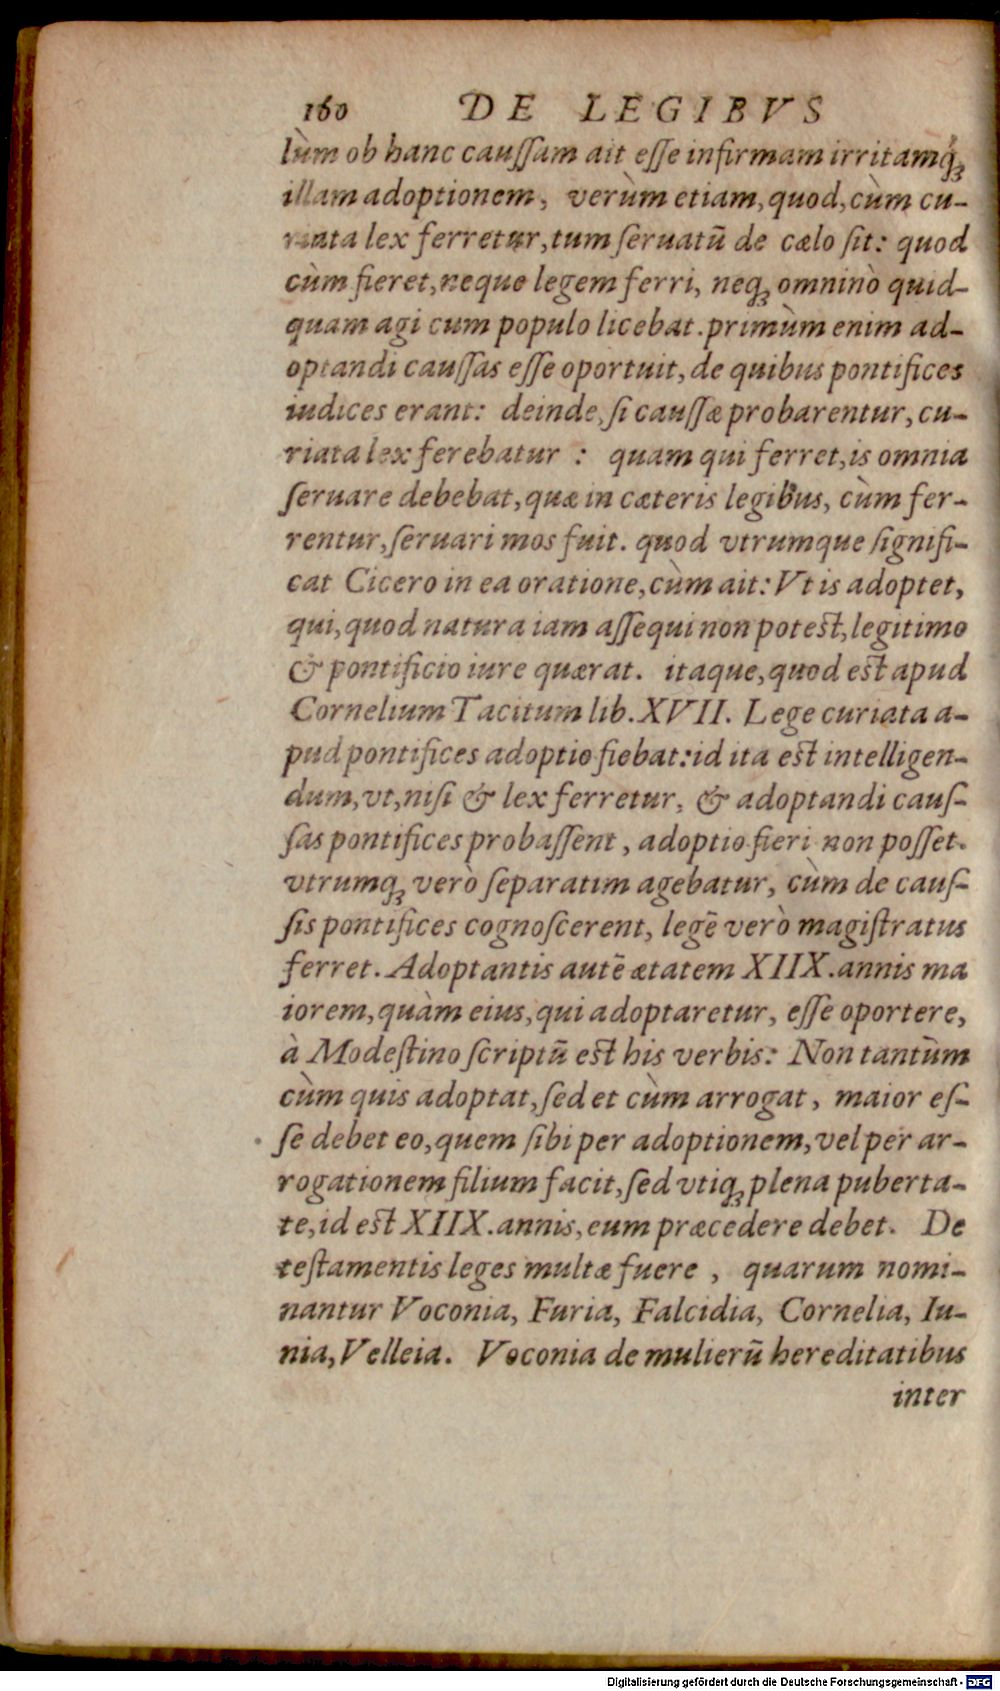 160 DE LEGIBVS
lùm ob hanc cauſſam ait eſſe infirmam irritamq́ꝫ
illam adoptionem, verùm etiam, quod, cùm cu-
riata lex ferretur, tum ſeruatū de cælo ſit: quod
cùm fieret, neque legem ferri, neqꝫ omninò quid-
quam agi cum populo licebat. primùm enim ad-
optandi cauſſas eſſe oportuit, de quibus pontifices
iudices erant: deinde, ſi cauſſæ probarentur, cu-
riata lex ferebatur : quam qui ferret, is omnia
ſeruare debebat, quæ in cæteris legibus, cùm fer-
rentur, ſeruari mos fuit. quod vtrumque ſignifi-
cat Cicero in ea oratione, cùm ait: Vt is adoptet,
qui, quod natura iam aſſequi non poteſt, legitimo
& pontificio iure quærat. itaque, quod eſt apud
Cornelium Tacitum lib. XVII. Lege curiata a-
pud pontifices adoptio fiebat: id ita eſt intelligen-
dum, vt, niſi & lex ferretur, & adoptandi cauſ-
ſas pontifices probaſſent, adoptio fieri non poſſet.
vtrumqꝫ verò ſeparatim agebatur, cùm de cauſ-
ſis pontifices cognoſcerent, legē verò magiſtratus
ferret. Adoptantis autē ætatem XIIX. annis ma
iorem, quàm eius, qui adoptaretur, eſſe oportere,
à Modeſtino ſcriptū eſt his verbis: Non tantùm
cùm quis adoptat, ſed et cùm arrogat, maior eſ-
ſe debet eo, quem ſibi per adoptionem, vel per ar-
rogationem filium facit, ſed vtiqꝫ plena puberta-
te, id eſt XIIX. annis, eum præcedere debet. De
teſtamentis leges multæ fuere , quarum nomi-
nantur Voconia, Furia, Falcidia, Cornelia, Iu-
nia, Velleia. Voconia de mulierū hereditatibus
inter
Digitalisierung gefördert durch die Deutsche Forschungsgemeinschaft - DFG